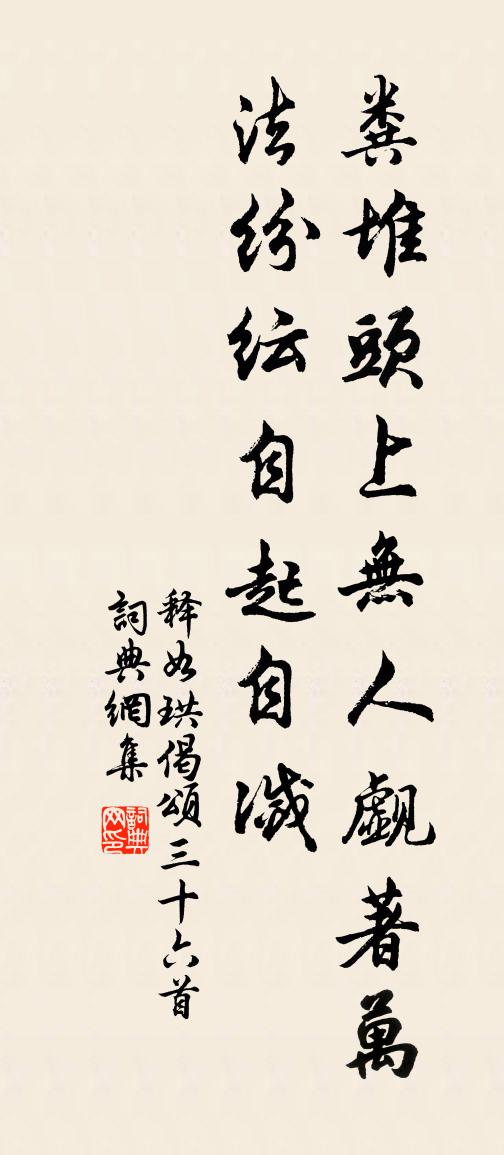 糞堆頭上無人覷著萬
法紛紜自起自滅
释如珙偈頌三十六首
詞典網集
詞典網印